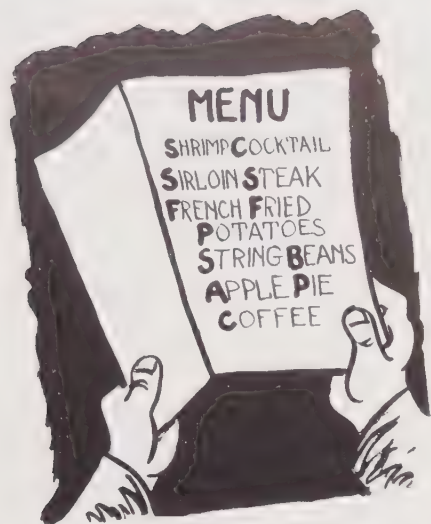 MENU
SHRIMP COCKTAIL
SIRLOIN STEAK
FRENCH FRIED
POTATOES
STRING BEANS
APPLE PIE
COFFEE